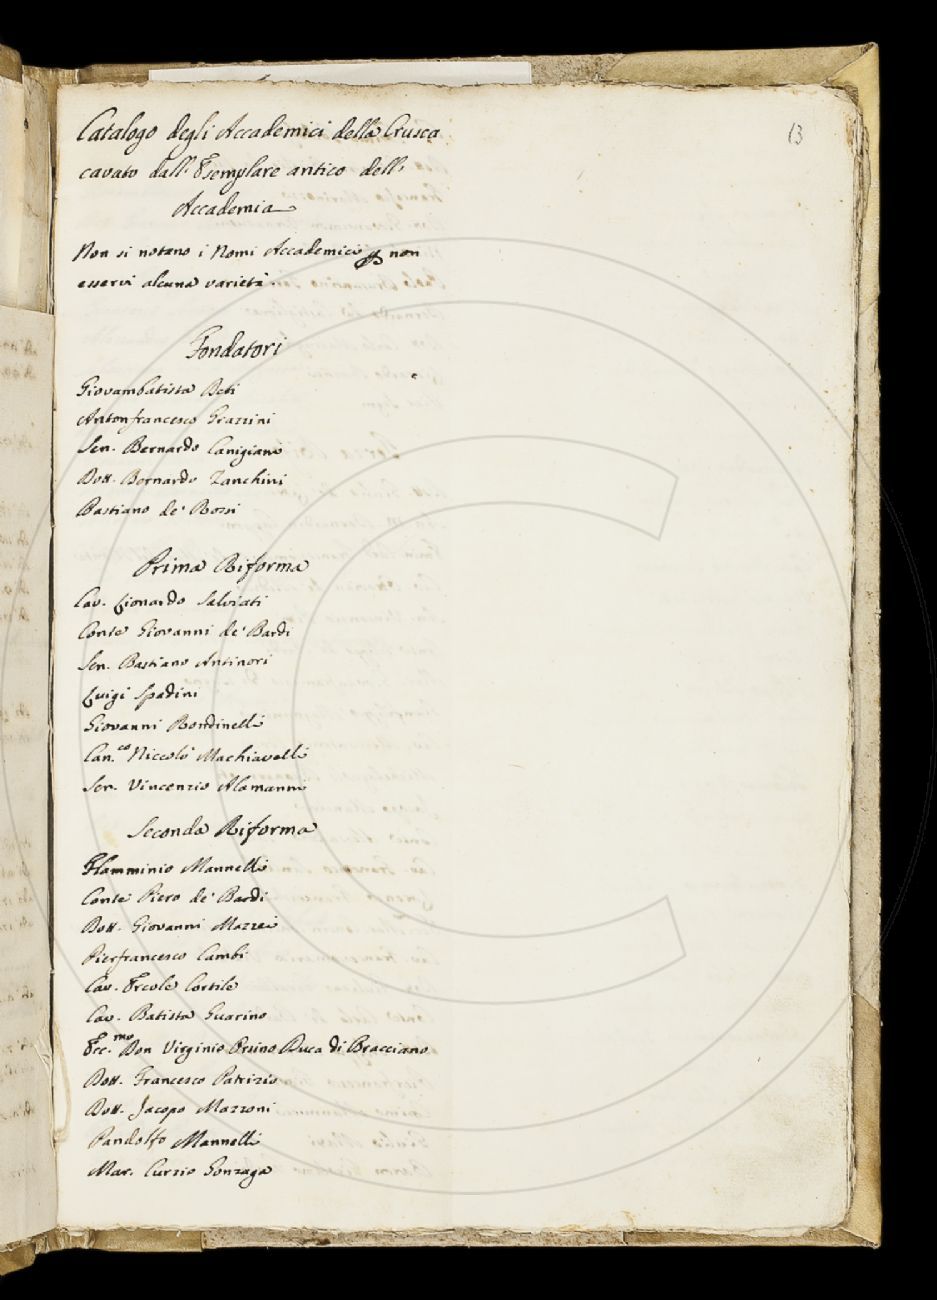 13
Catalogo degli Accademici della Crusca
cavato dall' Esemplare antico dell'
Accademia
Non si notano i Nomi Accademici p non
esservi alcuna varietà.
Fondatori
Giovambatista Deti
Antonfrancesco Grazzini
Sen. Bernardo Canigiani
Dott. Bernardo Zanchini
Bastiano de' Rossi
Prima Riforma
Cav. Lionardo Salviati
Conte Giovanni de' Bardi
Sen. Bastiano Antinori
Luigi Spadini
Giovanni Rondinelli
Can.co Niccolò Machiavelli
Sen. Vincenzio Alamanni
Seconda Riforma
Flamminio Mannelli
Conte Piero de' Bardi
Dott. Giovanni Mazzei
Pierfrancesco Cambi
Cav. Ercole Cortile
Cav. Batista Guarino
Ecc.mo Don Virginio Orsino Duca di Bracciano
Dott. Francesco Patrizio
Dott. Jacopo Mazzoni
Pandolfo Mannelli
Mar. Curzio Gonzaga